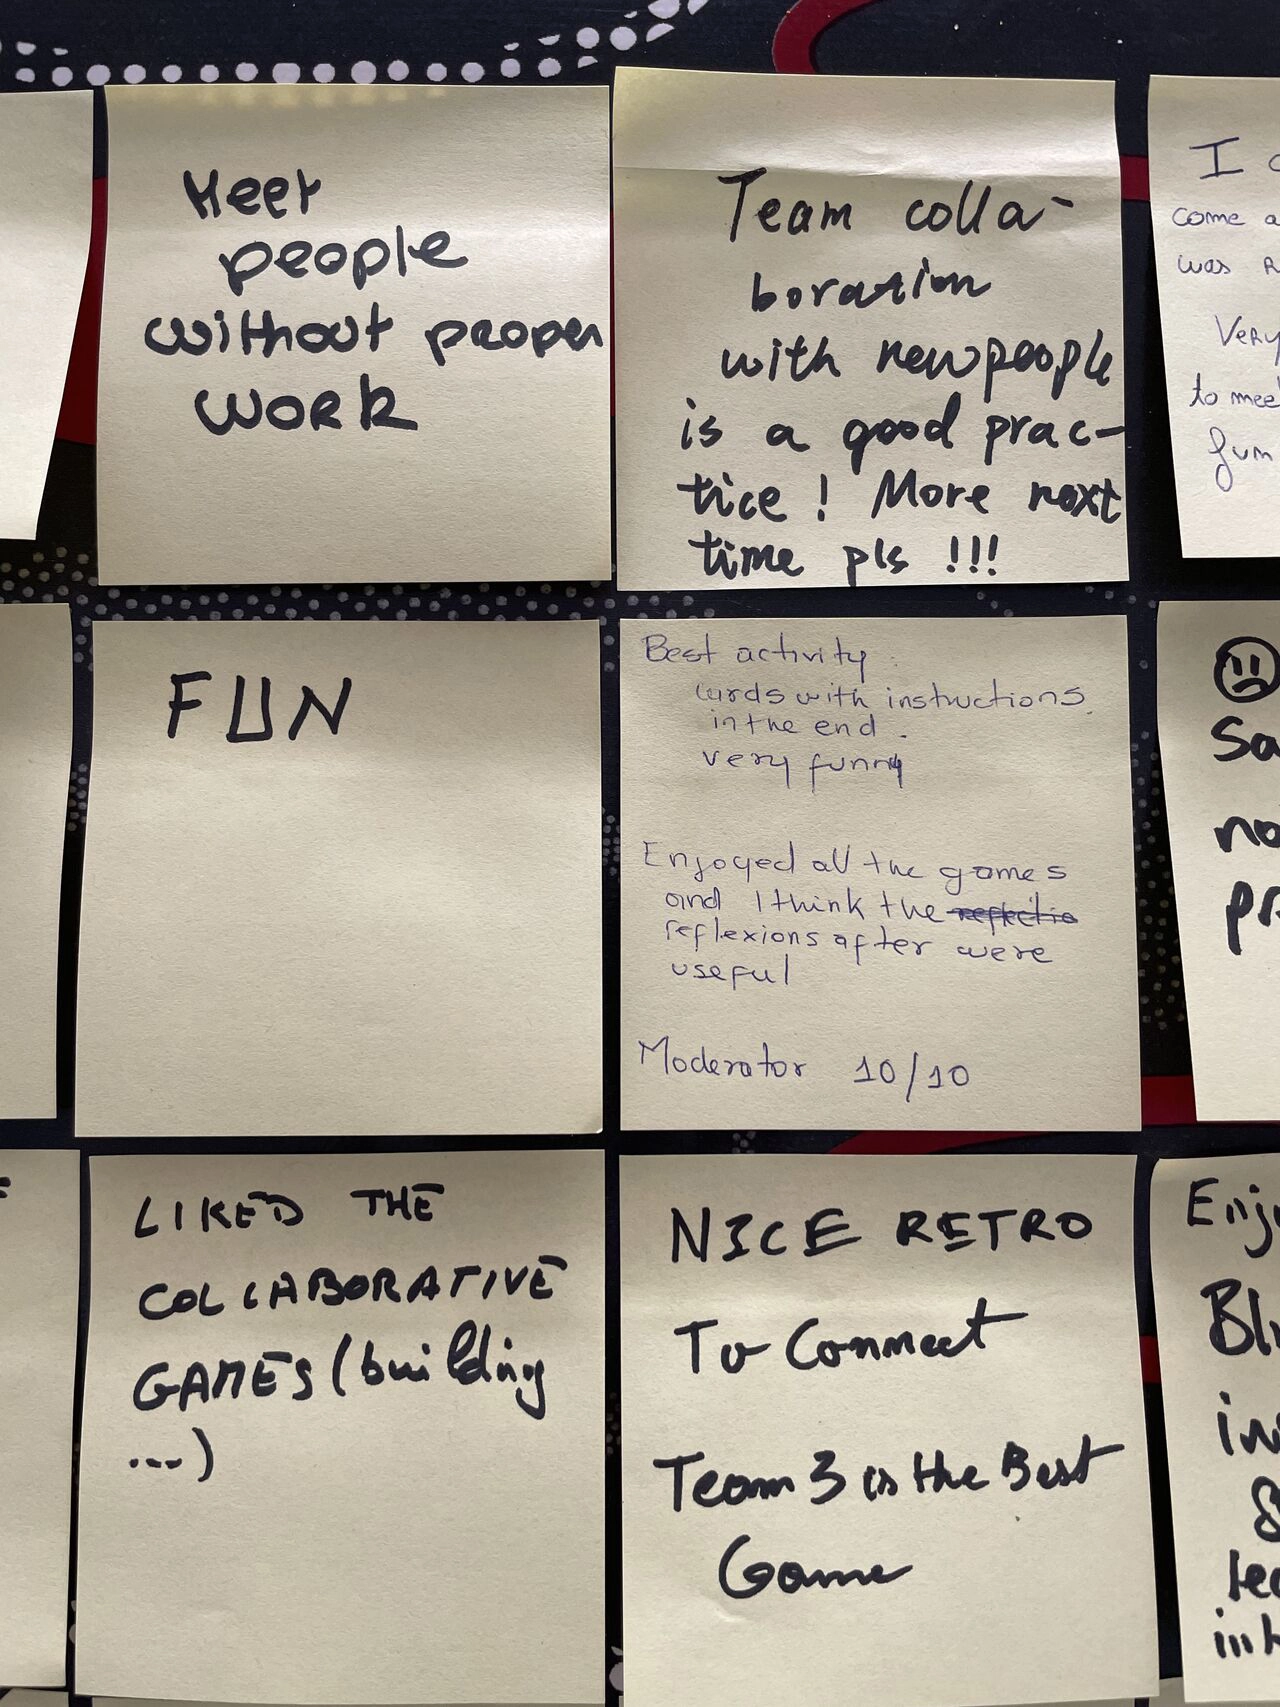 Meet
people
without proper
work
Team colla-
boration
with new people
is a good prac-
tice ! More next
time pls !!!
I
come a
was
Very
to meet
fun
FUN
Best activity
cards with instructions
in the end .
very funny
Enjoyed all the games
and I think the
reflexions after were
useful
Moderator 10/10
LIKED THE
COLLABORATIVE
GAMES (building
...)
NICE RETRO
To Connect
Team 3 is the Best
Game